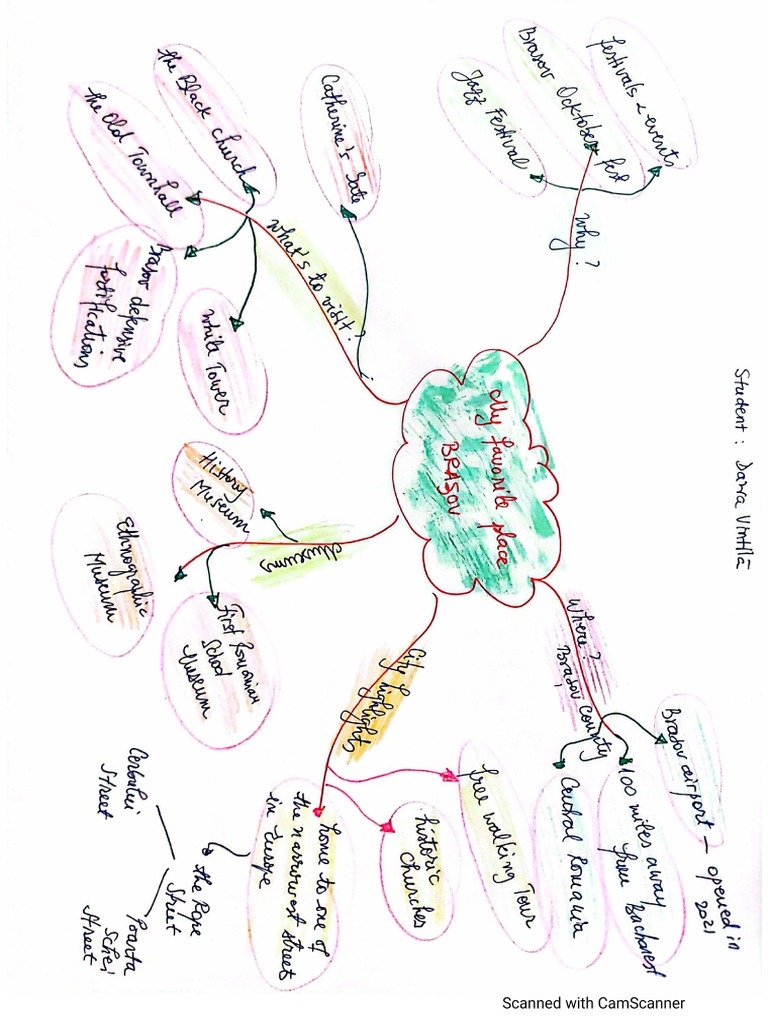 Student: Daria Vintilă
My favorite place
BRAȘOV
Why?
Festivals & events
Brasov Ocktober fest
Jazz Festival
What's to visit?
Catherine's Gate
the Black church
the Old Townhall
Brasov defensive
fortifications
White Tower
Museums
History
Museum
Ethnographic
Museum
First Romanian
School
Museum
City highlights
free walking Tour
historic
churches
home to one of
the narrowest street
in Europe
the Rope
Street
Cerbului
Street
Poarta
Schei
Street
Where?
Brașov county
Brasov airport – opened in
2021
100 miles away
from Bucharest
Central Romania
Scanned with CamScanner